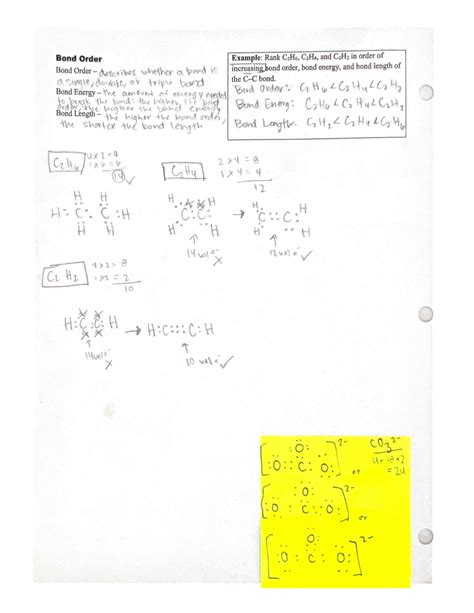 Bond Order
Bond Order – describes whether a bond is
a single, double, or triple bond
Bond Energy – the amount of energy needed
to break the bond: the higher the bond
order, the higher the bond energy
Bond Length – the higher the bond order,
the shorter the bond length
Example: Rank C₂H₆, C₂H₄, and C₂H₂ in order of
increasing bond order, bond energy, and bond length of
the C–C bond.
Bond Order: C₂H₆ < C₂H₄ < C₂H₂
Bond Energy: C₂H₆ < C₂H₄ < C₂H₂
Bond Length: C₂H₂ < C₂H₄ < C₂H₆
C₂H₆
4x2=8
1x6=6
14
H H
H:C:C:H
H H
C₂H₄
2x4=8
1x4=4
12
H H
:C:C:
H H
14 val e⁻
x
→
H H
C::C
H H
12 val e⁻ ✓
C₂H₂
4x2=8
1x2=2
10
H:C:C:H
14 val e⁻
x
→ H:C:::C:H
10 val e⁻ ✓
CO₃²⁻
= 24
[:O::C:O:]²⁻
:O:
or
[:O:C::O:]²⁻
:O:
or
[:O:C:O:]²⁻
:O: